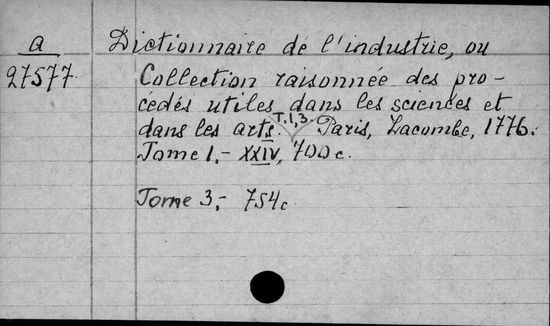 a
27577
Dictionnaire de l'industrie, ou
Collection raisonnée des pro-
cédés utiles dans les sciences et
dans les arts. T.1,3. Paris, Lacombe, 1776.
Tome 1,- XXIV, 700 c.
Tome 3,- 754 c